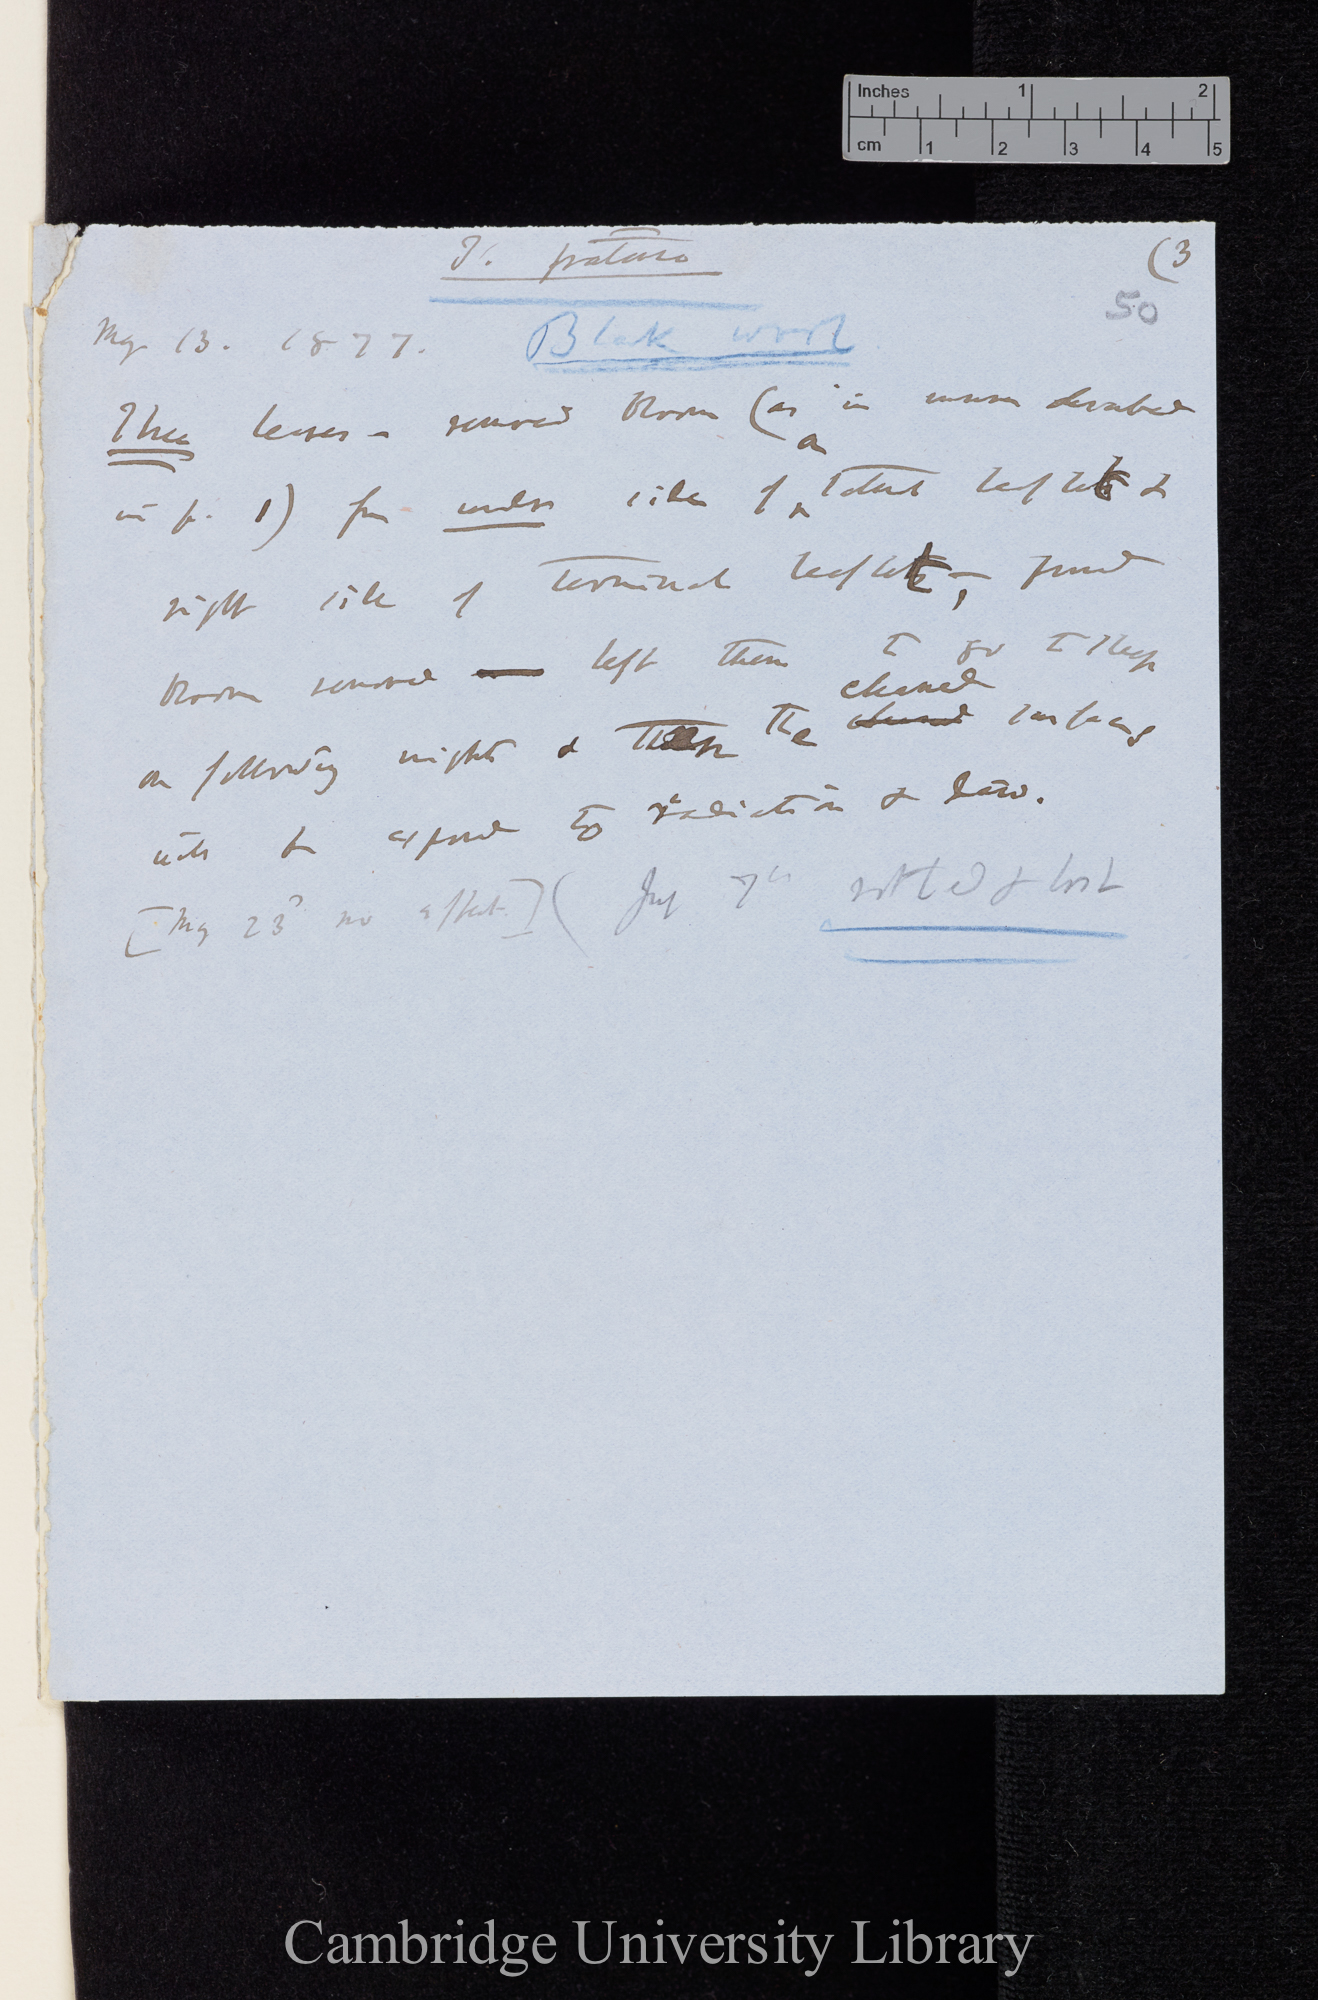 Inches 1 2
cm 1 2 3 4 5
T. pratense
(3
50
May 13. 1877.
Black wool
Three leaves – removed bloom (as in manner described
in p. 1) from under side of a lateral leaflet &
right side of terminal leaflet,
bloom removed left them to go to sleep
cleaned
on following nights & the surfaces
will be exposed to radiation & dew.
[May 23 no effect] ( July 7th & lost
Cambridge University Library